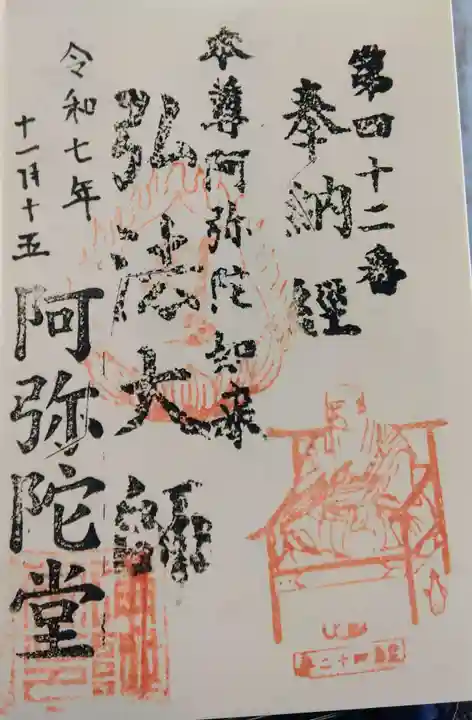 第四十二番
奉納經
本尊阿弥陀如来
弘法大師
阿弥陀堂
令和七年
十一月十五